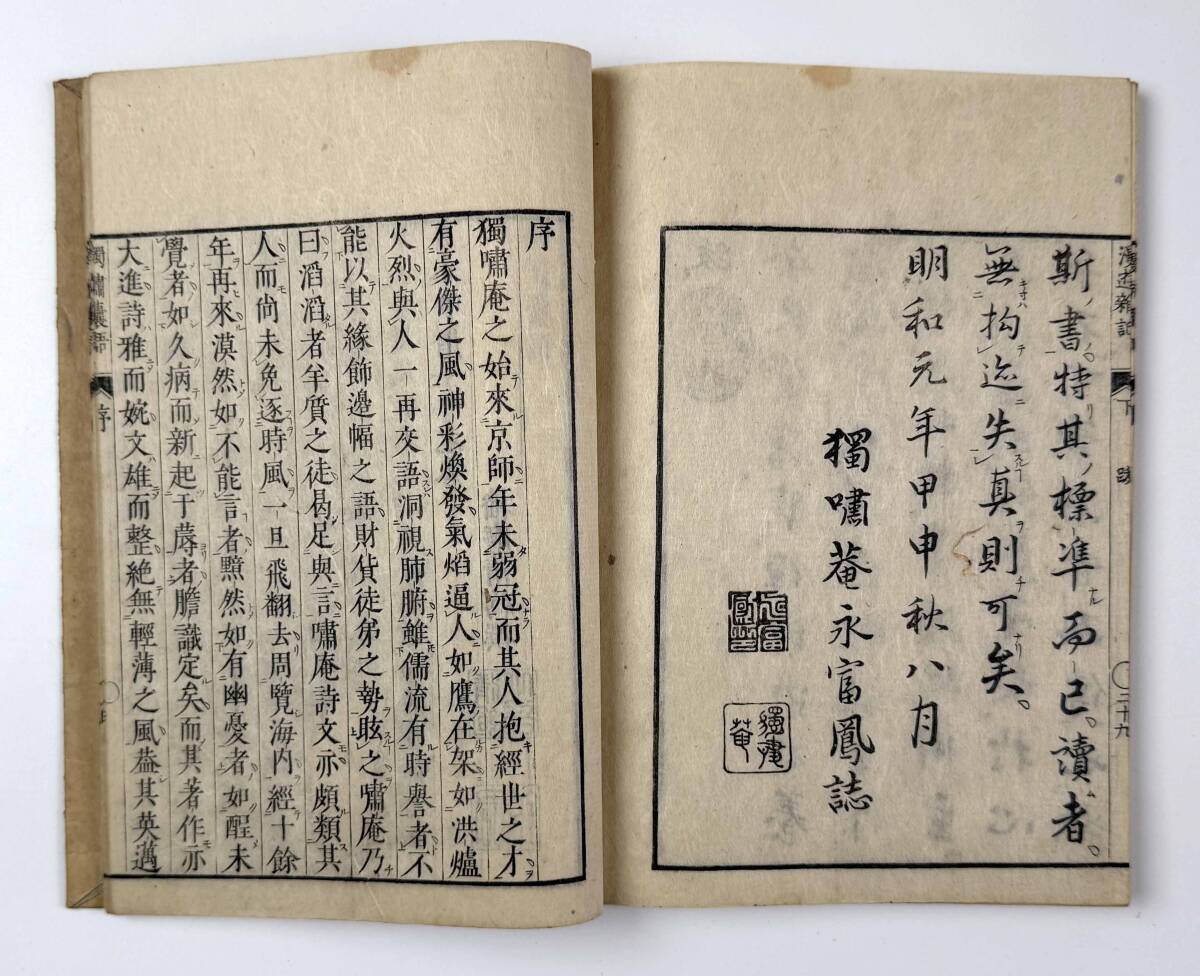 漫遊雜記
下
跋
三十九
斯書特其標準而已讀者
無拘迹失真則可矣
明和元年甲申秋八月
獨嘯菴永富鳳誌
永富鳳印
獨嘯菴
序
獨嘯庵之始來京師年未弱冠而其人抱經世之才
有豪傑之風神彩煥發氣焰逼人如鷹在架如洪爐
火烈與人一再交語洞視肺腑雖儒流有時譽者不
能以其緣飾邊幅之語財貨徒弟之勢眩之嘯庵乃
曰滔滔者羊質之徒曷足與言嘯庵詩文亦頗類其
人而尚未免逐時風一旦飛翻去周覽海内經十餘
年再來漠然如不能言者黯然如有幽憂者如酲未
覺者如久病而新起于蓐者膽識定矣而其著作亦
大進詩雅而婉文雄而整絕無輕薄之風葢其英邁
獨嘯囊語
序